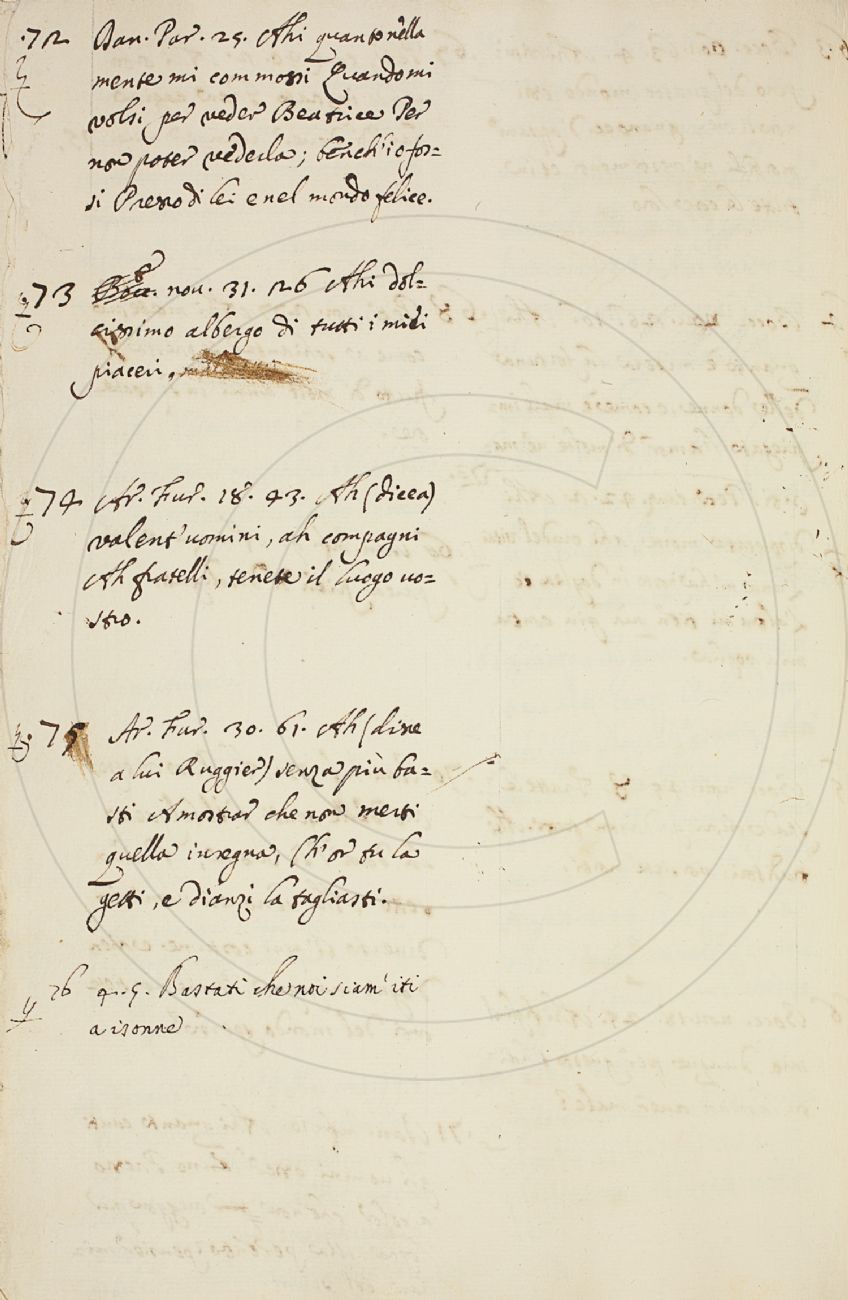 72 Dan. Par. 25. Ahi quanto nella
mente mi commossi Quando mi
volsi per veder Beatrice Per
non poter vederla; bench' io fos=
si Presso di lei e nel mondo felice.
73 Bocc. nov. 31. 26 Ahi dol=
cissimo albergo di tutti i miei
piaceri,
74 Ar. Fur. 18. 43. Ah (dicea)
valent' uomini, ah compagni
Ah fratelli, tenete il luogo vo=
stro.
75 Ar. Fur. 30. 61. Ah (disse
a lui Ruggier) senza più ba=
sti A mostrar che non merti
quella insegna, Ch' or tu la
getti, e dianzi la tagliasti.
76 4. 5. Bastati che noi siam' iti
a isonne